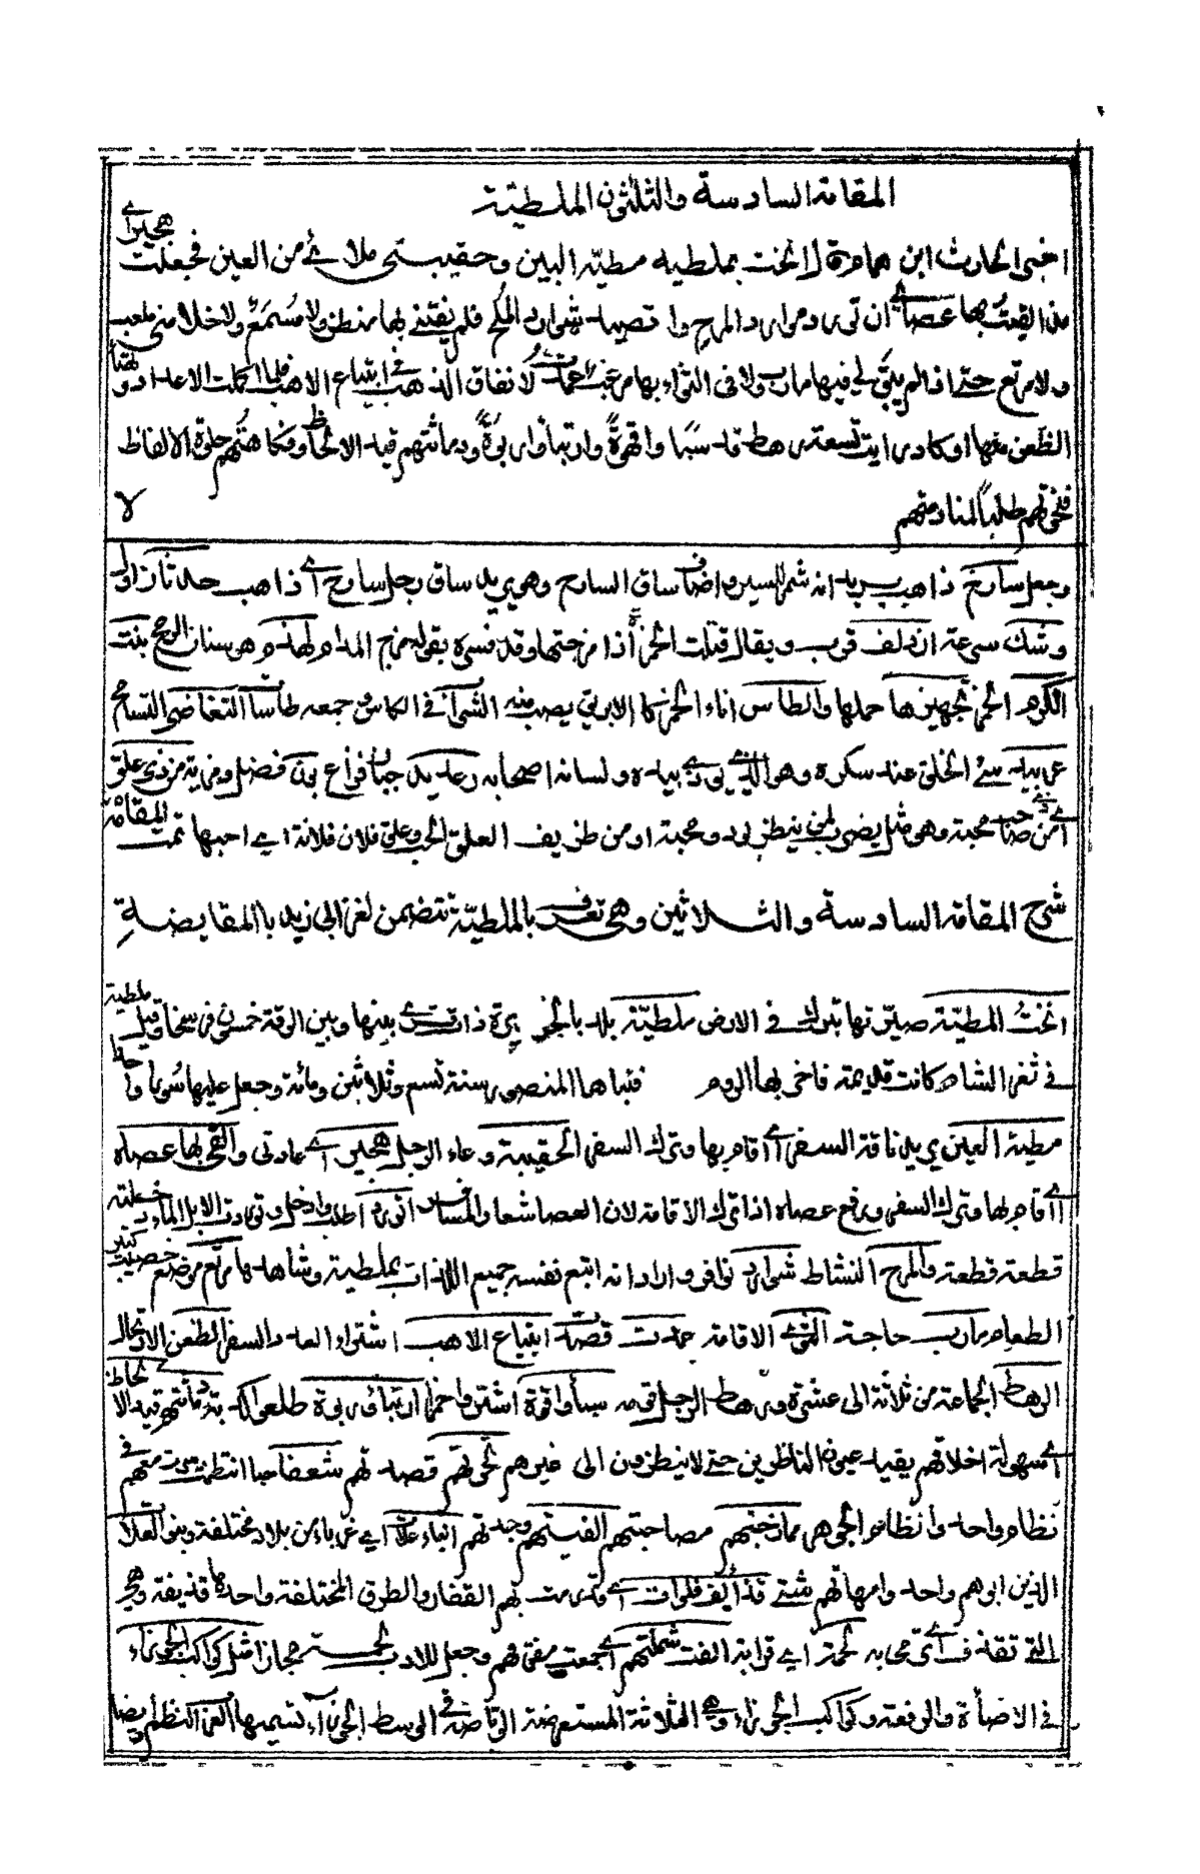 المقامة السادسة والثلثون الملطية
اخبر الحارث ابن همام قال انخت بملطيه مطيّه البين وحقيبتي ملائے من العين فجعلت هجيراے
مذ القيتُ بها عصاے ان تورد موارد المرح واتصيد شوارد المُلح فلم يفتني بها منظر ولا مُسمَع ولا خلا مني ملعب
ولا مرتع حتے اذا لم يبق لي فيها مارب ولا في الثواء بها مرغب عمدت لانفاق الذهب في ابتياع الاهب فلما اكملت الاعداد وتهيأ
الظعن منها او كاد رايت تسعة رهط قد سَبَأوا قهوةً وارتبأوا ربوةً ودماثتهم قيد الالحاظ وفكاهتهم حلوة الالفاظ
فنحوتهم طلباً لمنادمتهم لا
وجعل سارح ذاهب يريد انه شمر للسير واضاف ساق السارح وهو يريد ساق رجل سارح اے ذاهب
وشك سرعة ازدلف قرب ويقال قتلت الخمر اذا مزجتها وقد فسره بقوله مزج المدام لهذم وهو سنان الرمح بنت
الكرم الخمر تجهيزها حملها والطاس اناء الخمر كالابريق يصب منه الشراب في الكاس وجمعه طاسات التغاضي التسامح
عربيد سئ الخلق عند سكره وهو الذے يوذے بيده ولسانه اصحابه رعديد جبان فزاع بون فضل ومزية من ذي علق
اے من صاحب محبة وهو مثل يضرب لمن ينظر بود ومحبة او من طريف العلق الحب وعلق فلان فلانة اي احبها تمت المقامة
شرح المقامة السادسة والثلاثين وهي تعرف بالملطيّة تتضمن لغز ابي زيد بالمقايضةِ
انختُ المطيّة صيّرتها تبرك في الارض ملطيّة بلد بالجزيرة ذات قرے بينها وبين الرقة خمسون فرسخا وقيل ملطية
في ثغر الشام كانت قديمة فاخربها الروم فبناها المنصور سنة تسع وثلاثين ومائة وجعل عليها سُورا
مطية العين يريد ناقة السفر اے اقام بها وترك السفر الحقيبة وعاء الرجل هجيراے عادتي والقى بها عصاه
اے اقام بها وترك السفر ورفع عصاه اذا ترك الاقامة لان العصا شعار المسافر اتورد اطلب وادخل وتوردت الابل الماء دخلته
قطعة قطعة والمرح النشاط شوارد نوافر واراد انه اتبع نفسه جميع اللذات بملطية وشاهدها مرتع موضع خصيب كثير
الطعام مارب حاجة الثوے الاقامة عمدت قصدت ابتياع الاهب اشتراء العدد السفر الظعن الارتحال
الرهط الجماعة من ثلاثة الى عشرة ورهط الرجل قومه سبأوا قهوة اشتروا خمرا ارتبأوا ربوة طلعوا كدية دماثتهم قيد الالحاظ
اے سهولة اخلاقهم يقيد عيون الناظرين حتے لا ينظرون الى غيرهم نحوتهم قصدتهم شغفا حبا انتظمت صرت معهم في
نظام واحد وانظام الجوهر ممازجتهم مصاحبتهم الفيتهم وجدتهم ابناء علات اي غرباء من بلاد مختلفة وبنو العلات
الذين ابوهم واحد وامهاتهم شتے قذائف فلوات اے قد رمت بهم القفار والطرق المختلفة واحدها قذيفة وهي
التے تقذف اے ترمي به لحمة اي قرابة الفت شملهم اے جمعت مفترقهم وجعل للادب لحمة مجازا مثل كواكب الجوزاء
في الاضأة والرفعة وكواكب الجوزاء وهي الثلاثة المستعرضة الواضحة في الوسط الجوزاء تسميها العرب النظم ايضا